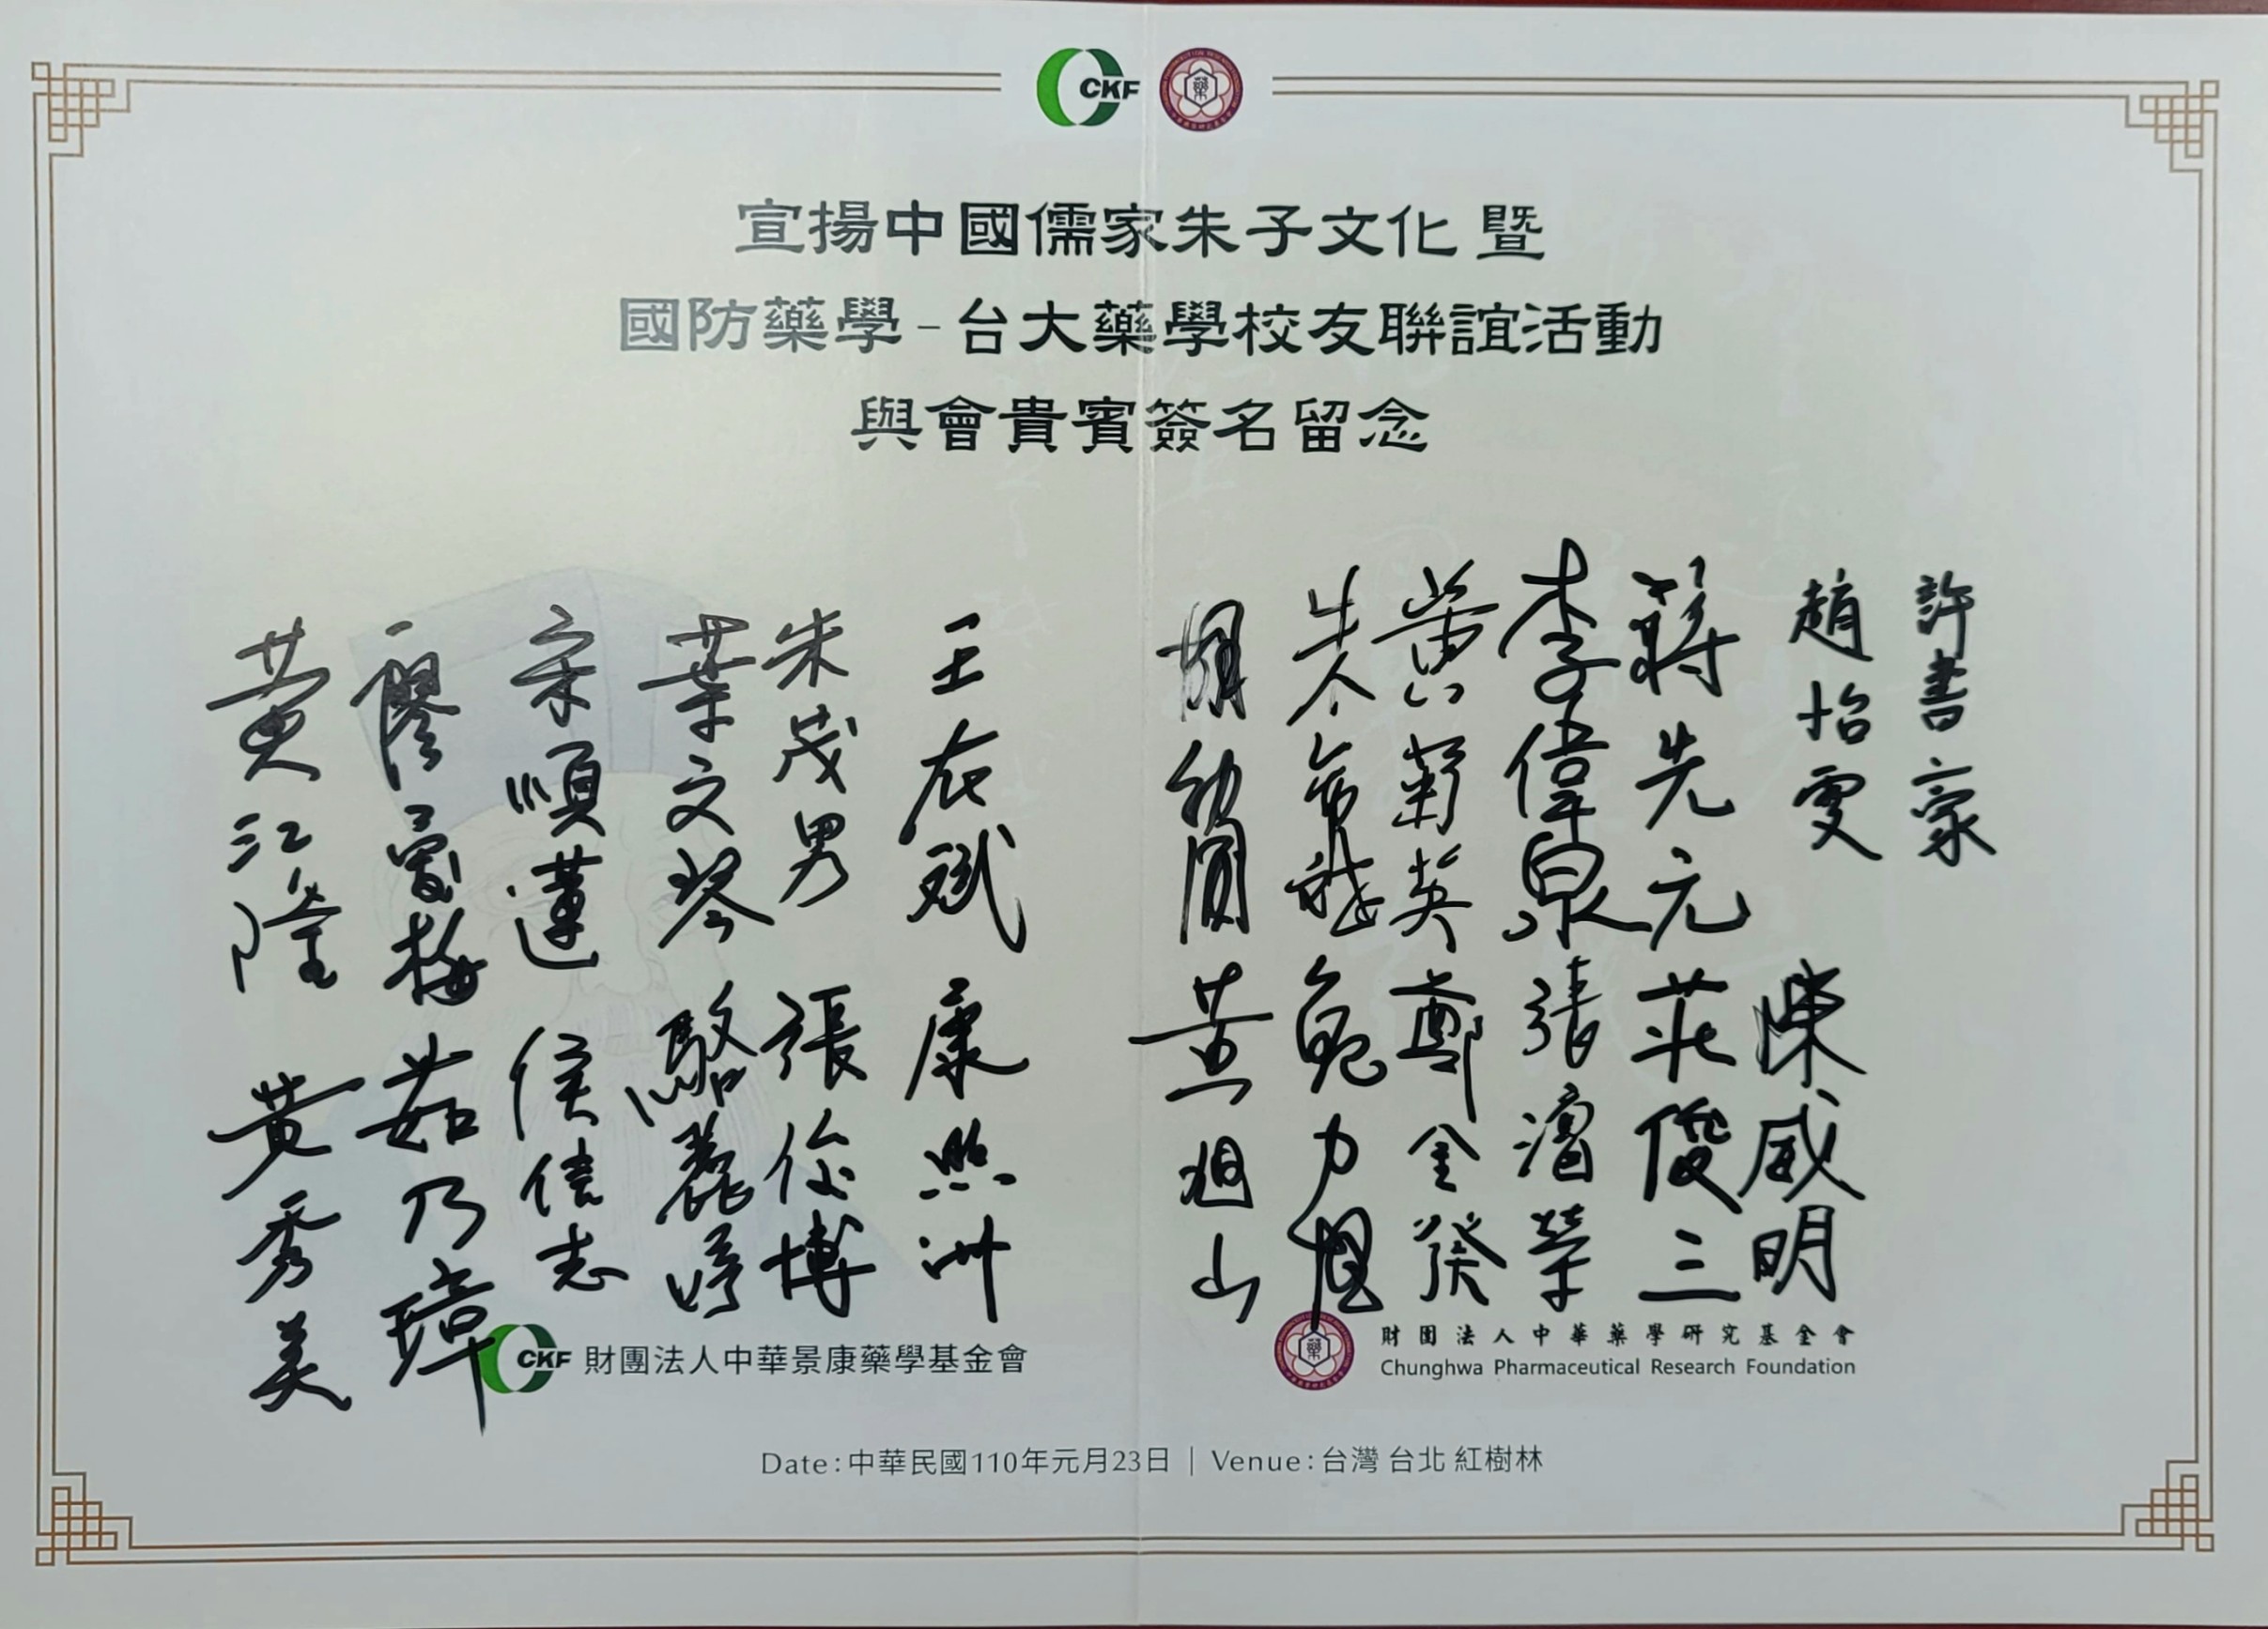 CKF
藥
宣揚中國儒家朱子文化 暨
國防藥學-台大藥學校友聯誼活動
與會貴賓簽名留念
許書豪
趙怡雯
榮威明
蔣先元
莊俊三
李偉泉
張濤榮
黃菊英
鄭金癸
朱
鮑力恆
胡幼圓
黃旭山
王在斌
康照洲
朱茂男
張俊博
葉文琴
駱麗婷
宋順蓮
侯信志
廖雪梅
茹乃璋
黃江隆
黃秀美
CKF 財團法人中華景康藥學基金會
藥 財團法人中華藥學研究基金會
Chunghwa Pharmaceutical Research Foundation
Date:中華民國110年元月23日 | Venue:台灣 台北 紅樹林